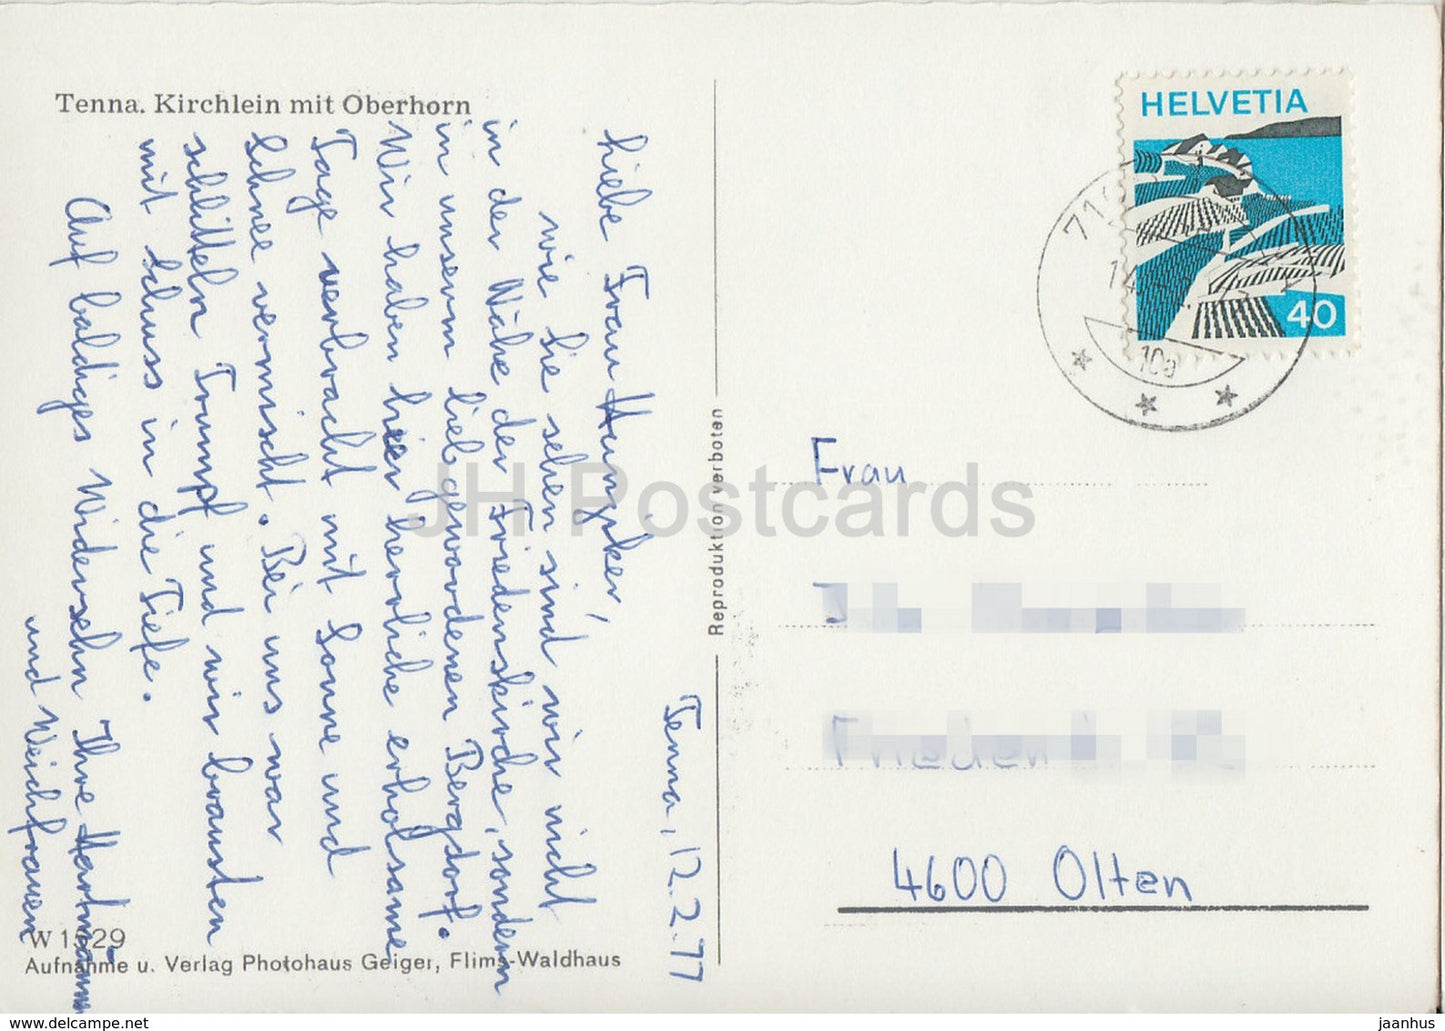 Tenna. Kirchlein mit Oberhorn
Tenna, 12.2.77
Liebe Frau Hunziker,
wie Sie sehen sind wir nicht
in der Nähe der Friedenskirche, sondern
in unserm liebgewordenen Bergdorf.
Wir haben hier herrliche erholsame
Tage verbracht mit Sonne und
Schnee vermischt. Bei uns war
schlitteln Trumpf und wir brausten
mit Schuss in die Tiefe.
Auf baldiges Widersehn Ihre Hartmann
und Weichfrauen
W 1529
Aufnahme u. Verlag Photohaus Geiger, Flims-Waldhaus
Reproduktion verboten
HELVETIA
40
10a
Frau
4600 Olten
JH Postcards
www.delcampe.net
jaanhus